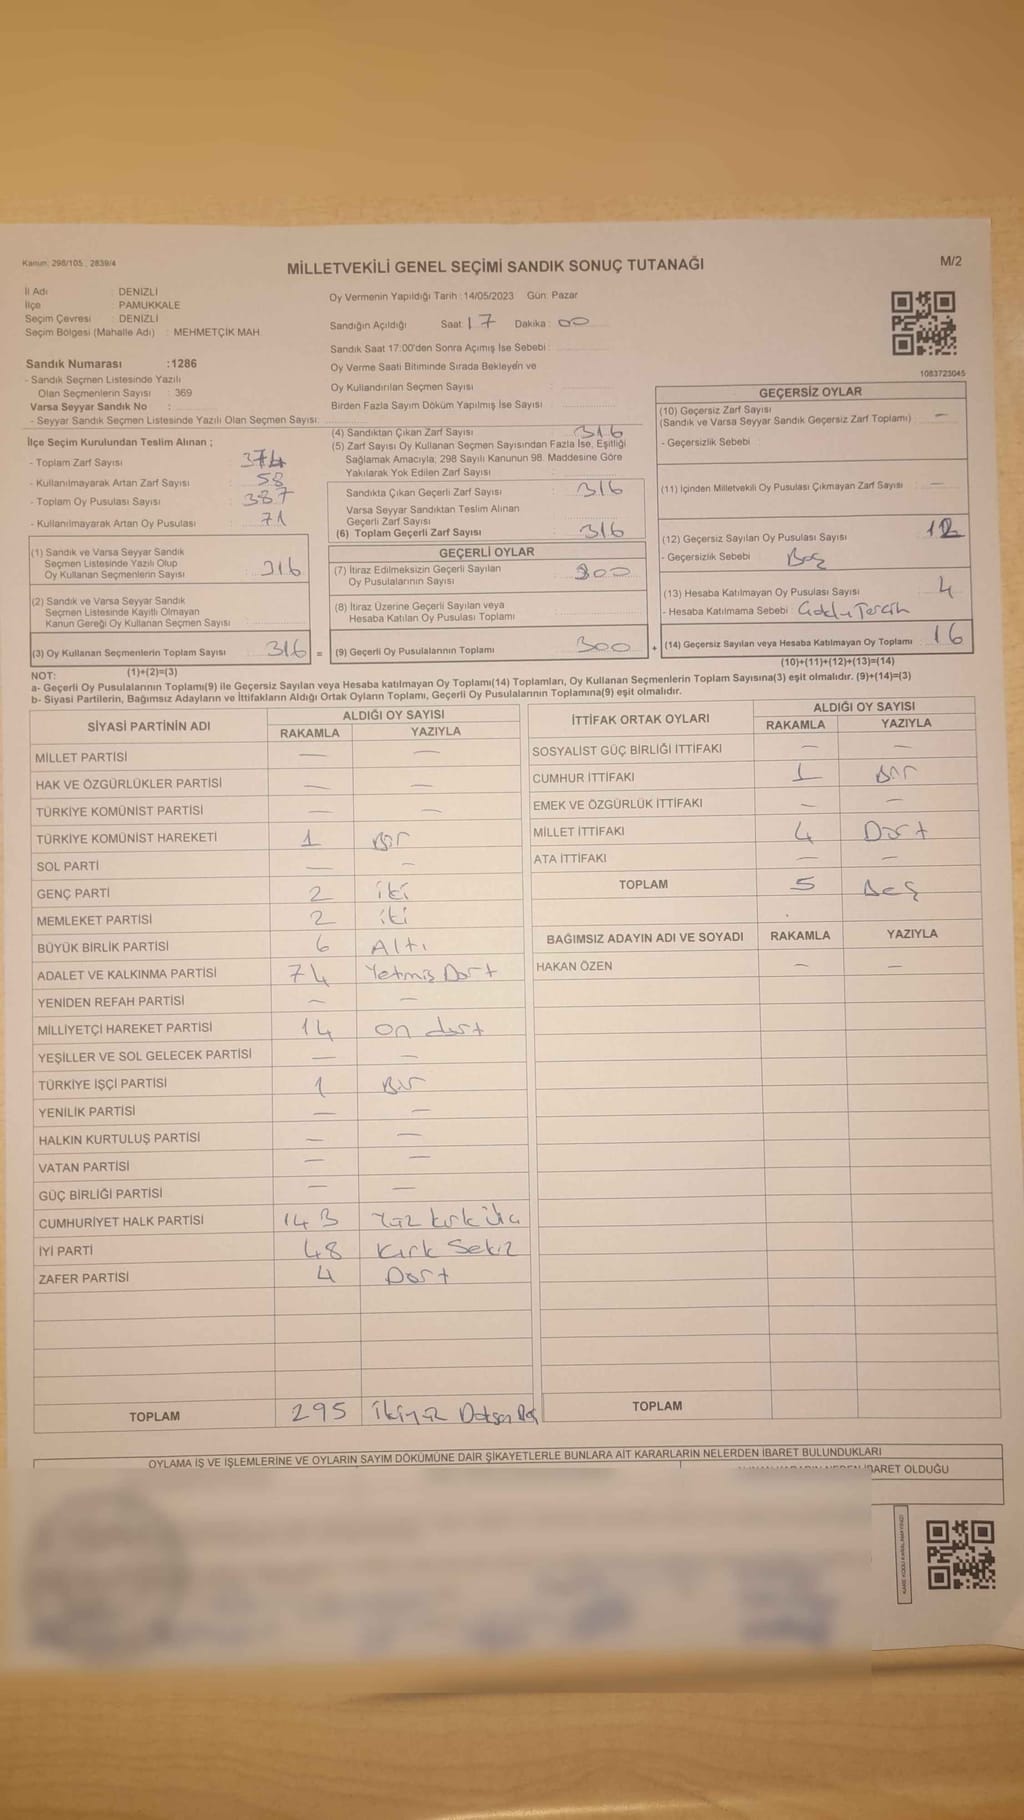 Kanun: 298/105 , 2839/4
MİLLETVEKİLİ GENEL SEÇİMİ SANDIK SONUÇ TUTANAĞI
M/2
İl Adı : DENİZLİ
İlçe : PAMUKKALE
Seçim Çevresi : DENİZLİ
Seçim Bölgesi (Mahalle Adı) : MEHMETÇİK MAH.
Sandık Numarası :1286
- Sandık Seçmen Listesinde Yazılı
Olan Seçmenlerin Sayısı : 369
Varsa Seyyar Sandık No :
- Seyyar Sandık Seçmen Listesinde Yazılı Olan Seçmen Sayısı:
İlçe Seçim Kurulundan Teslim Alınan ;
- Toplam Zarf Sayısı : 374
- Kullanılmayarak Artan Zarf Sayısı : 58
- Toplam Oy Pusulası Sayısı : 387
- Kullanılmayarak Artan Oy Pusulası : 71
(1) Sandık ve Varsa Seyyar Sandık
Seçmen Listesinde Yazılı Olup
Oy Kullanan Seçmenlerin Sayısı : 316
(2) Sandık ve Varsa Seyyar Sandık
Seçmen Listesinde Kayıtlı Olmayan
Kanun Gereği Oy Kullanan Seçmen Sayısı :
(3) Oy Kullanan Seçmenlerin Toplam Sayısı : 316 =
Oy Vermenin Yapıldığı Tarih :14/05/2023 Gün: Pazar
Sandığın Açıldığı Saat: 17 Dakika : 00
Sandık Saat 17:00'den Sonra Açımış İse Sebebi :
Oy Verme Saati Bitiminde Sırada Bekleyen ve
Oy Kullandırılan Seçmen Sayısı :
Birden Fazla Sayım Döküm Yapılmış İse Sayısı :
(4) Sandıktan Çıkan Zarf Sayısı : 316
(5) Zarf Sayısı Oy Kullanan Seçmen Sayısından Fazla İse, Eşitliği
Sağlamak Amacıyla; 298 Sayılı Kanunun 98. Maddesine Göre
Yakılarak Yok Edilen Zarf Sayısı :
Sandıkta Çıkan Geçerli Zarf Sayısı : 316
Varsa Seyyar Sandıktan Teslim Alınan
Geçerli Zarf Sayısı :
(6) Toplam Geçerli Zarf Sayısı : 316
GEÇERLİ OYLAR
(7) İtiraz Edilmeksizin Geçerli Sayılan
Oy Pusulalarının Sayısı : 300
(8) İtiraz Üzerine Geçerli Sayılan veya
Hesaba Katılan Oy Pusulası Toplamı :
(9) Geçerli Oy Pusulalarının Toplamı : 300 +
1083723045
GEÇERSİZ OYLAR
(10) Geçersiz Zarf Sayısı
(Sandık ve Varsa Seyyar Sandık Geçersiz Zarf Toplamı) : —
- Geçersizlik Sebebi :
(11) İçinden Milletvekili Oy Pusulası Çıkmayan Zarf Sayısı : —
(12) Geçersiz Sayılan Oy Pusulası Sayısı : 12
- Geçersizlik Sebebi : Boş
(13) Hesaba Katılmayan Oy Pusulası Sayısı : 4
- Hesaba Katılmama Sebebi : Tercih
(14) Geçersiz Sayılan veya Hesaba Katılmayan Oy Toplamı : 16
NOT: (1)+(2)=(3)
(10)+(11)+(12)+(13)=(14)
a- Geçerli Oy Pusulalarının Toplamı(9) ile Geçersiz Sayılan veya Hesaba katılmayan Oy Toplamı(14) Toplamları, Oy Kullanan Seçmenlerin Toplam Sayısına(3) eşit olmalıdır. (9)+(14)=(3)
b- Siyasi Partilerin, Bağımsız Adayların ve İttifakların Aldığı Ortak Oyların Toplamı, Geçerli Oy Pusulalarının Toplamına(9) eşit olmalıdır.
SİYASİ PARTİNİN ADI
ALDIĞI OY SAYISI
RAKAMLA YAZIYLA
MİLLET PARTİSİ — —
HAK VE ÖZGÜRLÜKLER PARTİSİ — —
TÜRKİYE KOMÜNİST PARTİSİ — —
TÜRKİYE KOMÜNİST HAREKETİ 1 Bir
SOL PARTİ — —
GENÇ PARTİ 2 iki
MEMLEKET PARTİSİ 2 iki
BÜYÜK BİRLİK PARTİSİ 6 Altı
ADALET VE KALKINMA PARTİSİ 74 Yetmiş Dört
YENİDEN REFAH PARTİSİ — —
MİLLİYETÇİ HAREKET PARTİSİ 14 on dört
YEŞİLLER VE SOL GELECEK PARTİSİ — —
TÜRKİYE İŞÇİ PARTİSİ 1 Bir
YENİLİK PARTİSİ — —
HALKIN KURTULUŞ PARTİSİ — —
VATAN PARTİSİ — —
GÜÇ BİRLİĞİ PARTİSİ — —
CUMHURİYET HALK PARTİSİ 143 Yüz kırk üç
İYİ PARTİ 48 Kırk Sekiz
ZAFER PARTİSİ 4 Dört
TOPLAM 295 İkiyüz Doksan Beş
İTTİFAK ORTAK OYLARI
ALDIĞI OY SAYISI
RAKAMLA YAZIYLA
SOSYALİST GÜÇ BİRLİĞİ İTTİFAKI — —
CUMHUR İTTİFAKI 1 Bir
EMEK VE ÖZGÜRLÜK İTTİFAKI — —
MİLLET İTTİFAKI 4 Dört
ATA İTTİFAKI — —
TOPLAM 5 Beş
BAĞIMSIZ ADAYIN ADI VE SOYADI RAKAMLA YAZIYLA
HAKAN ÖZEN — —
TOPLAM
OYLAMA İŞ VE İŞLEMLERİNE VE OYLARIN SAYIM DÖKÜMÜNE DAİR ŞİKAYETLERLE BUNLARA AİT KARARLARIN NELERDEN İBARET BULUNDUKLARI
İBARET OLDUĞU